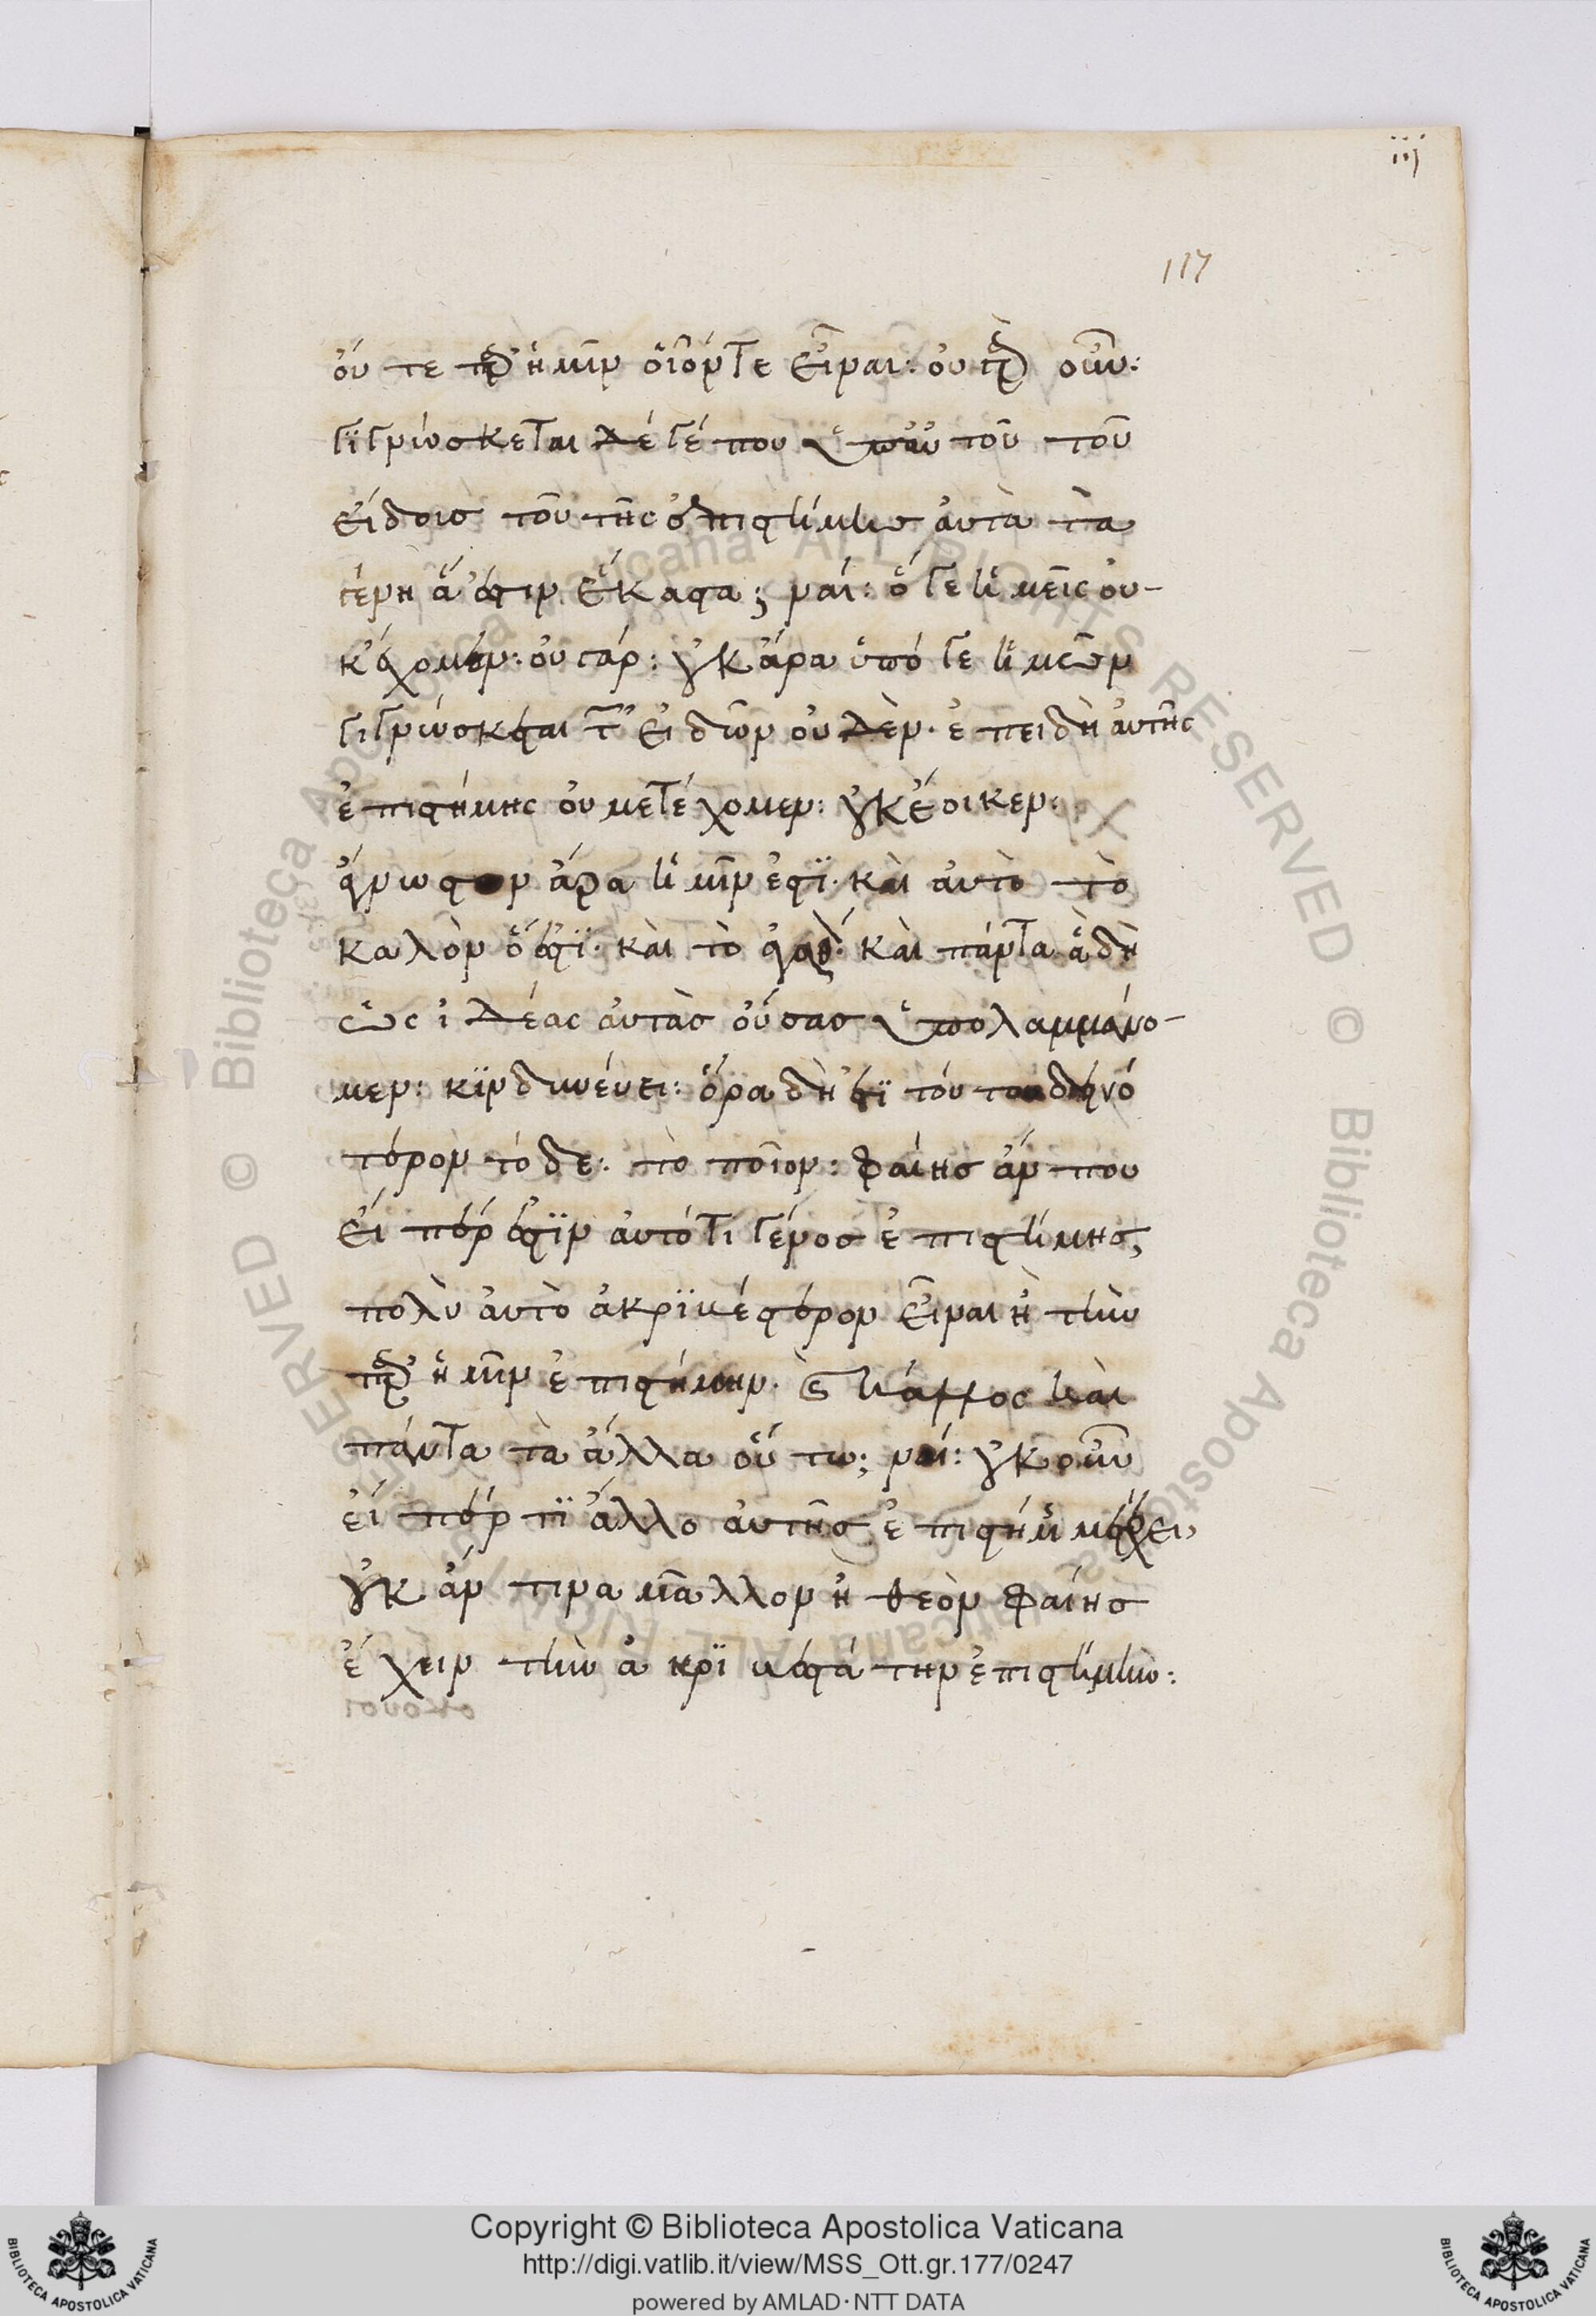 iij
117
οὔτε παρ' ἡμῖν οἷόν τε εἶναι: οὐ γὰρ οὖν:
γιγνώσκεται δέ γέ που ὑπ' αὐτοῦ τοῦ
εἴδους τοῦ τῆς ἐπιστήμης αὐτὰ τὰ
γένη ἅ ἐστιν ἕκαστα; ναί: ὅ γε ἡμεῖς οὐ-
κ ἔχομεν: οὐ γάρ: οὐκ ἄρα ὑπό γε ἡμῶν
γιγνώσκεται τῶν εἰδῶν οὐδέν· ἐπειδὴ αὐτῆς
ἐπιστήμης οὐ μετέχομεν: οὐκ ἔοικεν:
ἄγνωστον ἄρα ἡμῖν ἐστὶ· καὶ αὐτὸ τὸ
καλὸν ὅ ἐστι· καὶ τὸ ἀγαθόν· καὶ πάντα ἃ δὴ
ὡς ἰδέας αὐτὰς οὔσας ὑπολαμβάνο-
μεν: κινδυνεύει: ὅρα δὴ ἔτι τούτου δεινό
τερον τόδε: τὸ ποῖον: φαίης ἄν που
εἴπερ ἐστὶν αὐτό τι γένος ἐπιστήμης,
πολὺ αὐτὸ ἀκριβέστερον εἶναι ἢ τὴν
παρ' ἡμῖν ἐπιστήμην· καὶ κάλλος καὶ
πάντα τὰ ἄλλα οὕτω; ναί: οὐκοῦν
εἴπερ τι ἄλλο αὐτῆς ἐπιστήμης μετέχει,
οὐκ ἄν τινα μᾶλλον ἢ θεὸν φαίης
ἔχειν τὴν ἀκριβεστάτην ἐπιστήμην:
Copyright © Biblioteca Apostolica Vaticana
http://digi.vatlib.it/view/MSS_Ott.gr.177/0247
powered by AMLAD·NTT DATA